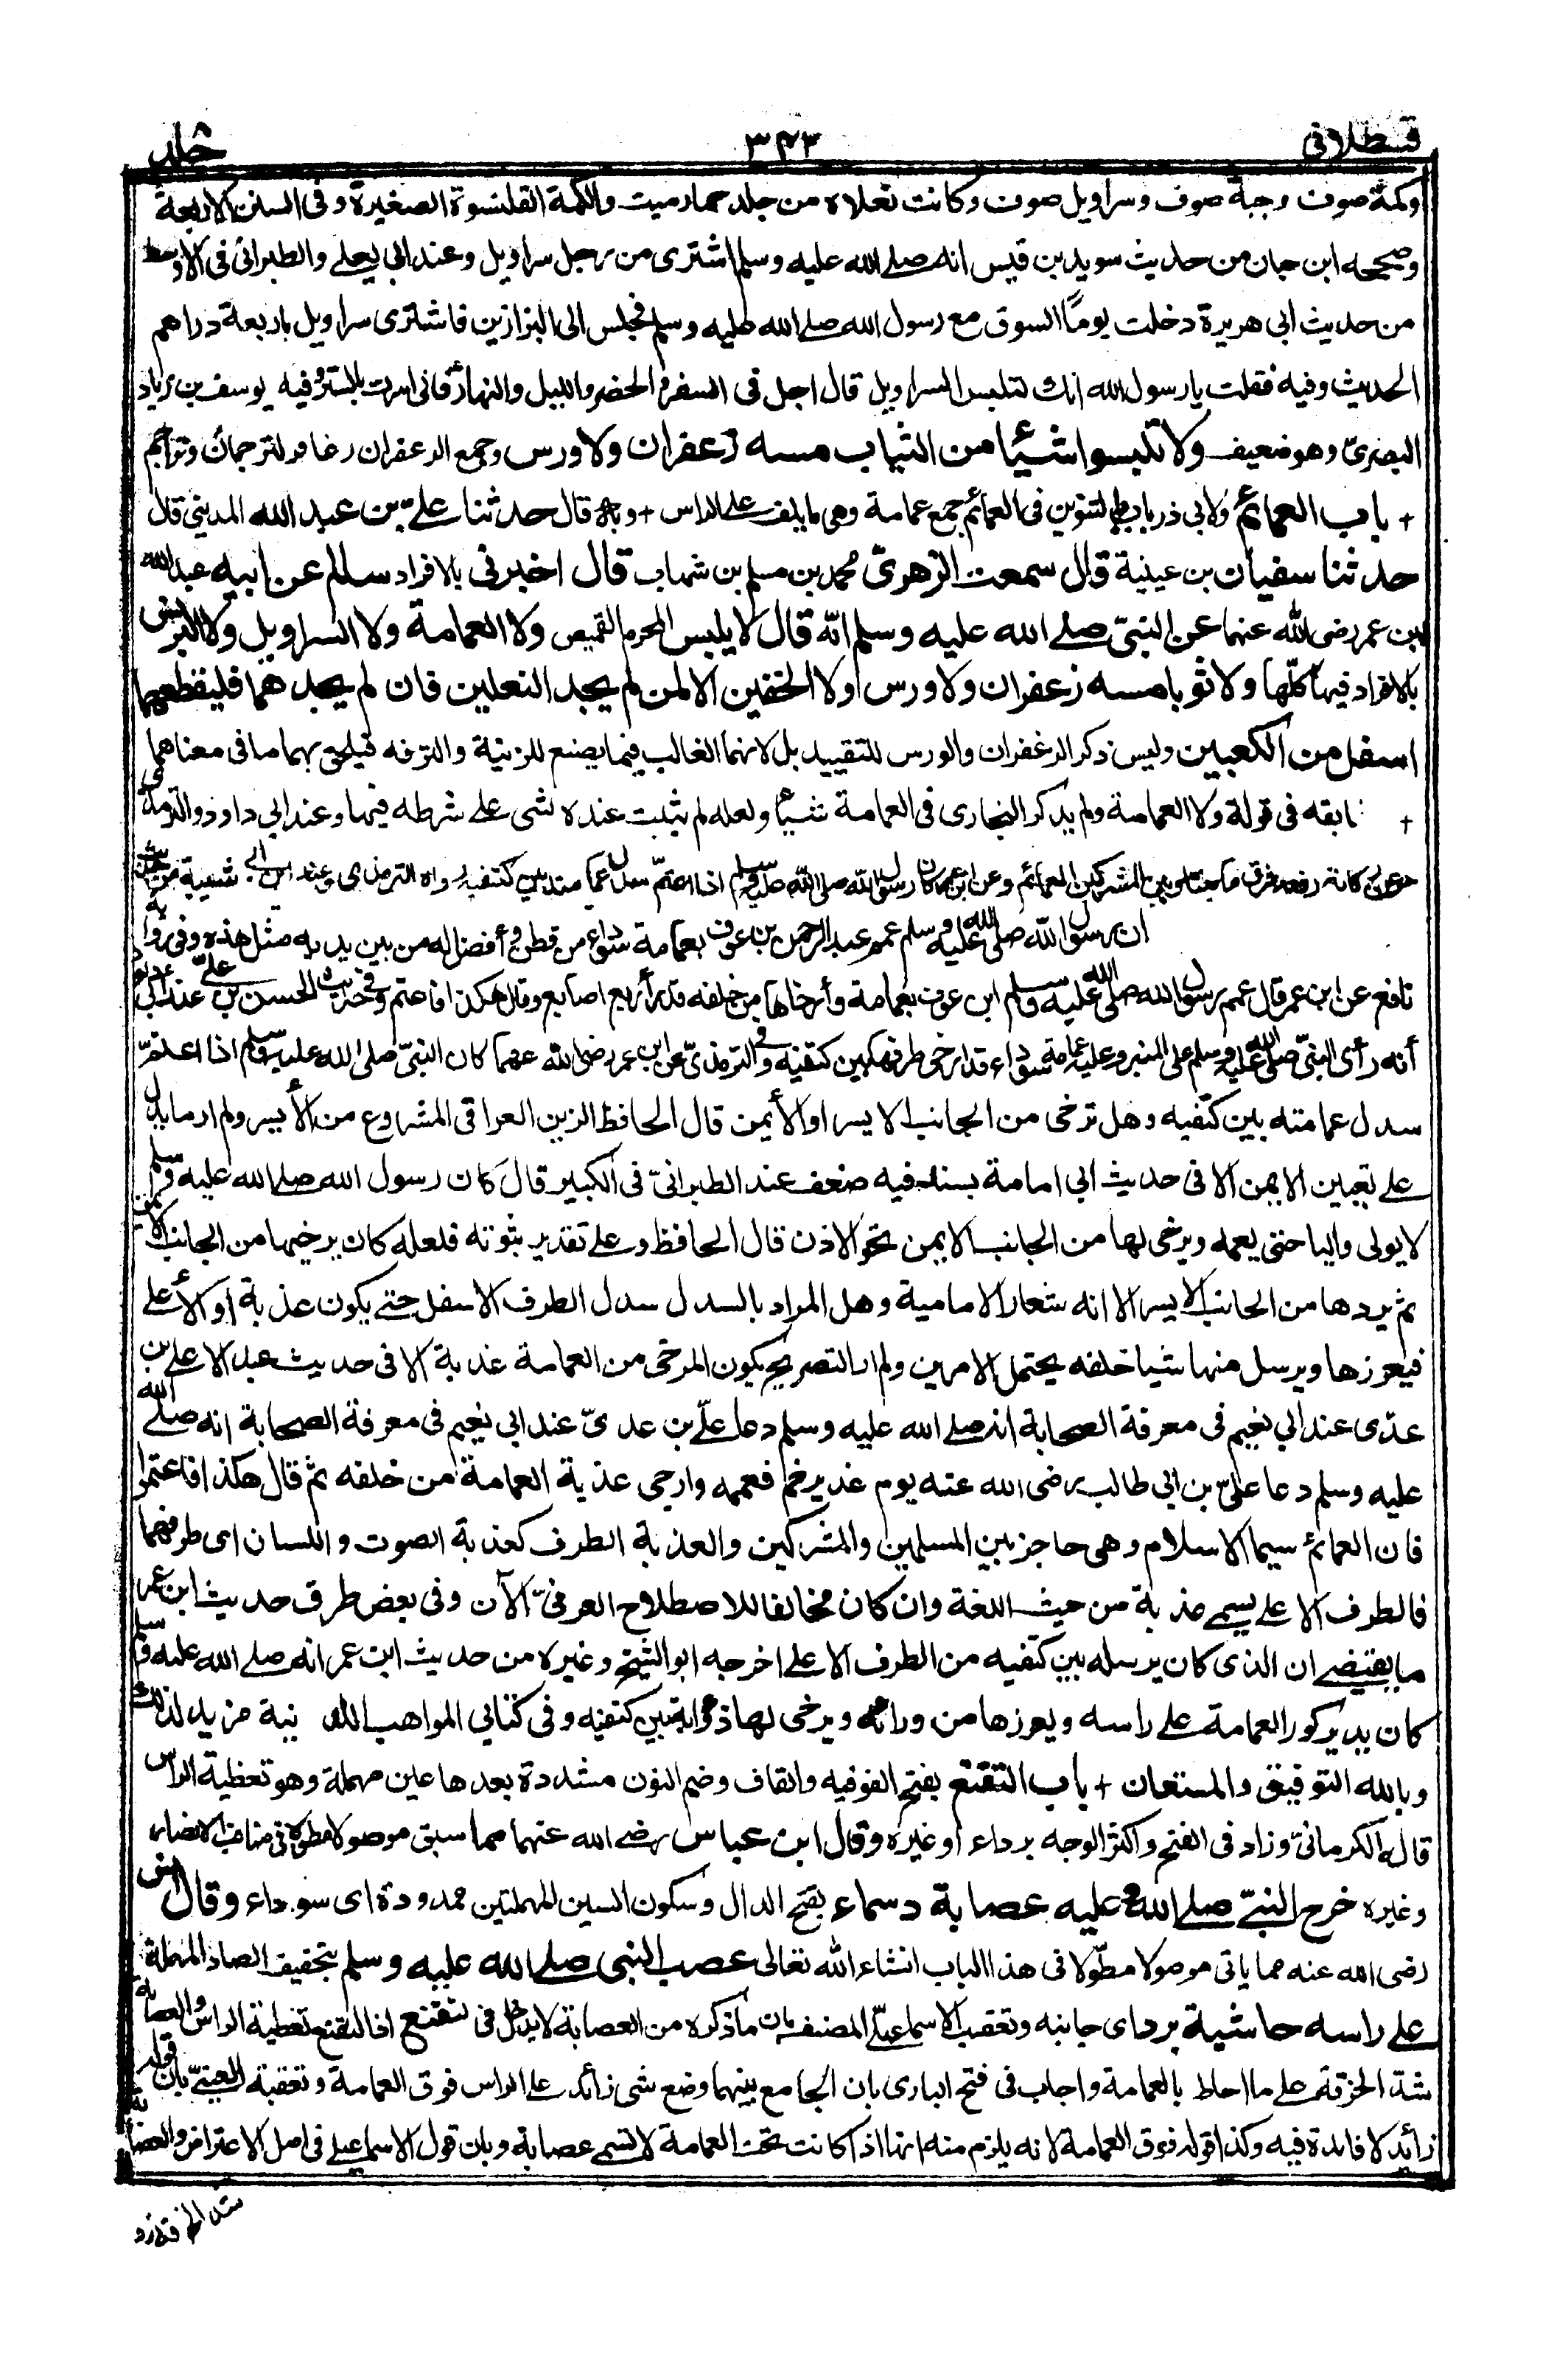 قسطلانی
۳۴۳
جلد ۸
وكمة صوف وجبة صوف وسراويل صوف وكانت نعلاه من جلد حمار ميت والكمة القلنسوة الصغيرة وفى السنن الاربعة
وصححه ابن حبان من حديث سويد بن قيس انه صلے الله عليه وسلم اشترى من رجل سراويل وعند ابى يعلے والطبرانى فى الاوسط
من حديث ابى هريرة دخلت يوماً السوق مع رسول الله صلے الله عليه وسلم فجلس الى البزازين فاشترى سراويل باربعة دراهم
الحديث وفيه فقلت يا رسول الله انك لتلبس السراويل قال اجل فى السفر والحضر والليل والنهار فانى امرت بالستر وفيه يوسف بن زياد
البصرىّ وهو ضعيف ولا تلبسوا شيئا من الثياب مسه زعفران ولا ورس وجمع الزعفران زعافر لترجمان وتراجم
+ باب العمائم ولابى ذر باب بالتنوين فى العمائم جمع عمامة وهى ما يلف على الراس + وبه قال حدثنا علىّ بن عبد الله المدينى قال
حدثنا سفيان بن عيينة قال سمعت الزهرىّ محمد بن مسلم بن شهاب قال اخبرنى بالافراد سالم عن ابيه عبد الله
بن عمر رضى الله عنهما عن النبىّ صلے الله عليه وسلم انّه قال لا يلبس المحرم القميص ولا العمامة ولا السراويل ولا البرنس
بالافراد فيها كلّها ولا ثوبا مسه زعفران ولا ورس ولا الخفين الا لمن لم يجد النعلين فان لم يجدهما فليقطعهما
اسفل من الكعبين وليس ذكر الزعفران والورس للتقييد بل لانهما الغالب فيما يصنع للزينة والترفه فيلحق بهما ما فى معناهما
+ ابقه فى قوله ولا العمامة ولم يذكر البخارى فى العمامة شيئا ولعله لم يثبت عنده شى على شرطه فيها وعند ابى داود والترمذى
عن ركانة رفعه فرق ما بيننا وبين المشركين العمائم وعن ابن عمر كان رسول الله صلى الله عليه وسلم اذا اعتم سدل عمامته بين كتفيه رواه الترمذى وعند ابن ابى شيبة من حديث
ان رسول الله صلى الله عليه وسلم عمم عبد الرحمن بن عوف بعمامة سوداء من قطن وأفضل له من بين يديه مثل هذه وفى رواية
نافع عن ابن عمر قال عمم رسول الله صلى الله عليه وسلم ابن عوف بعمامة وأرخاها من خلفه قدر أربع اصابع وقال هكذا فاعتم وفى حديث الحسن بن علىّ عند ابى داود
أنه رأى النبىّ صلى الله عليه وسلم على المنبر وعليه عمامة سوداء قد ارخى طرفها بين كتفيه وفى الترمذىّ عن ابن عمر رضى الله عنهما كان النبىّ صلى الله عليه وسلم اذا اعتمّ
سدل عمامته بين كتفيه وهل ترخى من الجانب الايسر او الأيمن قال الحافظ الزين العراقى المشروع من الأيسر ولم ار ما يدل
على تعيين الايمن الا فى حديث ابى امامة بسند فيه ضعف عند الطبرانىّ فى الكبير قال كان رسول الله صلے الله عليه وسلم
لا يولى واليا حتى يعممه ويرخى لها من الجانب الايمن نحو الاذن قال الحافظ وعلى تقدير ثبوته فلعله كان يرخيها من الجانب الايمن
ثم يردها من الجانب الايسر الا انه شعار الامامية وهل المراد بالسدل سدل الطرف الاسفل حتے يكون عذبة أو الأعلى
فيغرزها ويرسل منها شيا خلفه يحتمل الامرين ولم ار التصريح بكون المرخى من العمامة عذبة الا فى حديث عبد الاعلى بن
عدّى عند ابى نعيم فى معرفة الصحابة انه صلے الله عليه وسلم دعا علىّ بن عدىّ عند ابى نعيم فى معرفة الصحابة انه صلے الله
عليه وسلم دعا علىّ بن ابى طالب رضى الله عنه يوم غدير خم فعممه وارخى عذبة العمامة من خلفه ثم قال هكذا فاعتموا
فان العمائم سيما الاسلام وهى حاجز بين المسلمين والمشركين والعذبة الطرف كعذبة الصوت واللسان اى طرفهما
فالطرف الاعلى يسمے عذبة من حيث اللغة وان كان مخالفا للاصطلاح العرفىّ الآن وفى بعض طرق حديث ابن عمر
ما يقتضے ان الذى كان يرسله بين كتفيه من الطرف الاعلى اخرجه ابو الشيخ وغيره من حديث ابن عمر انه صلے الله عليه وسلم
كان يدير كور العمامة على راسه ويغرزها من ورائه ويرخى لها ذؤابة بين كتفيه وفى كتابى المواهب اللدنية مزيد لذلك
وبالله التوفيق والمستعان + باب التقنع بفتح الفوقيه والقاف وضم النون مشددة بعدها عين مهملة وهو تغطية الراس
قاله الكرمانىّ وزاد فى الفتح واكثر الوجه برداء او غيره وقال ابن عباس رضے الله عنهما مما سبق موصولا مطولا فى مناقب الانصار
وغيره خرج النبىّ صلے الله عليه عصابة دسماء بفتح الدال وسكون السين المهملتين ممدودة اى سوداء وقال انس
رضى الله عنه مما ياتى موصولا مطوّلا فى هذا الباب انشاء الله تعالى عصب النبى صلے الله عليه وسلم بتخفيف الصاد المهملة
على راسه حاشية برد اى جانبه وتعقب الاسماعيلىّ المصنف بان ما ذكره من العصابة لا يدخل فى لتقنع اذ التقنع تغطية الراس والعصابة
شدّ الخرقة على ما احاط بالعمامة واجاب فى فتح البارى بان الجامع بينهما وضع شى زائد على الراس فوق العمامة وتعقبة العينىّ بان قوله
زائد لا فائدة فيه وكذا قوله فوق العمامة لانه يلزم منه انها اذا كانت تحت العمامة لا تسمى عصابة وبان قول الاسماعيلى فى اصل الاعتراض والعصابة
شد الخرقة